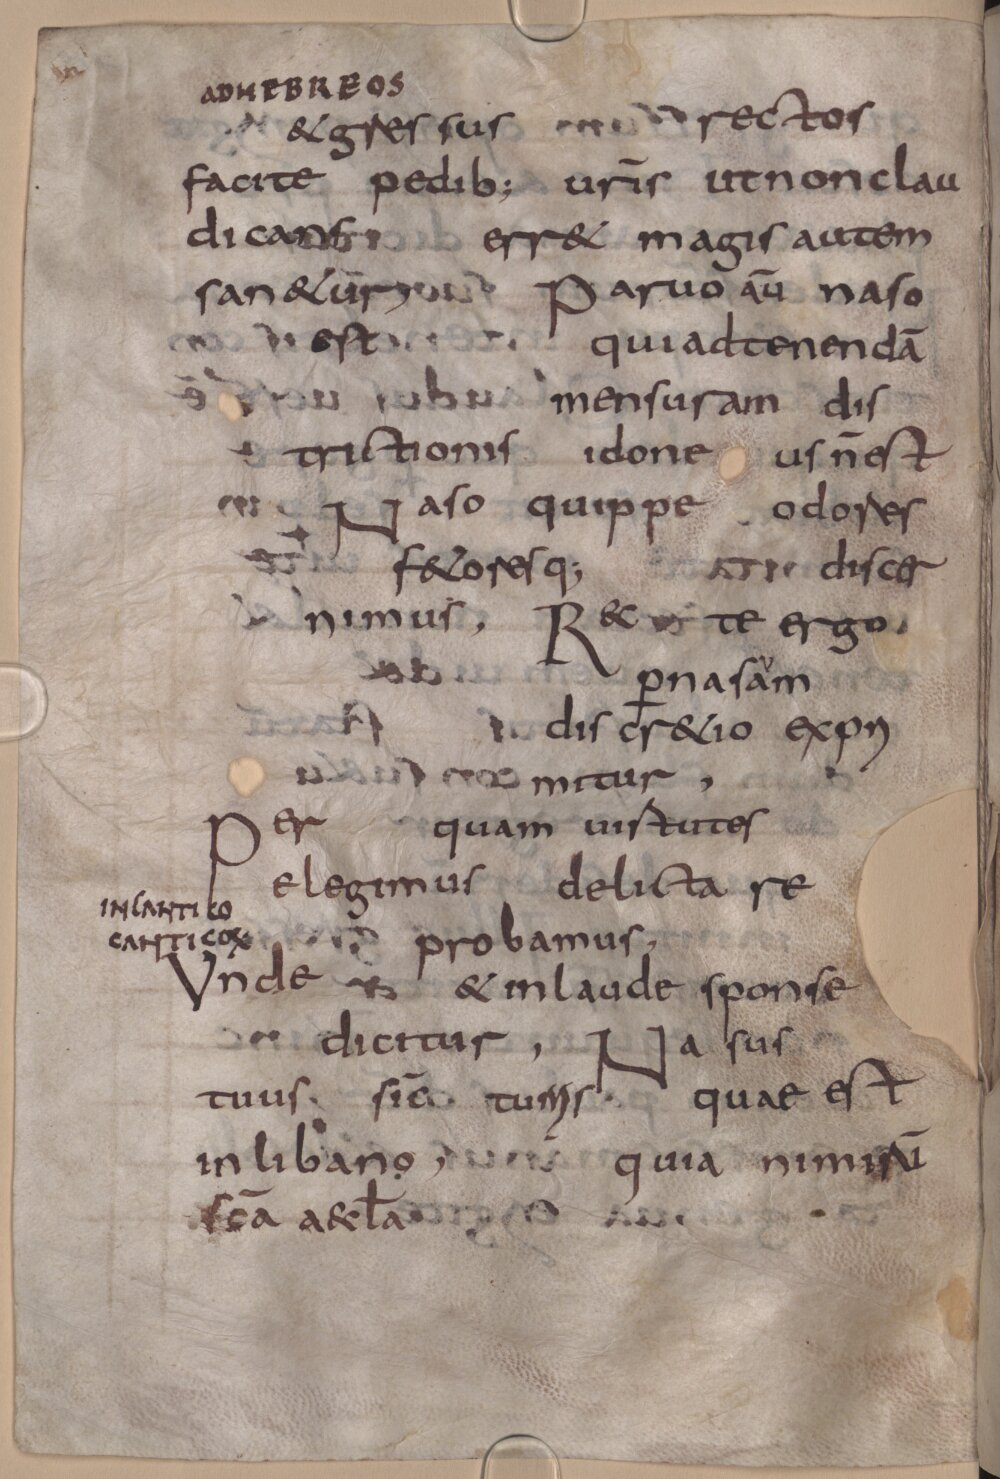 ADHEBREOS
&gressus rectos
facite pedib; urīs ut non clau
dicans err& magis autem
san&ur, Paruo aū naso
est qui ad tenendā
mensuram dis
trictionis idone us n̄ est
Naso quippe odores
f&oresq; discer
nimus, R&te ergo
p̱ nasum
discr&io exp
mitur,
Per quam uirtutes
elegimus delicta re
IN CANTICO
CANTICOꝝ
probamus,
Vnde & in laude sponse
dicitur, Nasus
tuus sic̄ turris quae est
in libano, quia nimirū
sc̄a aecl̄a